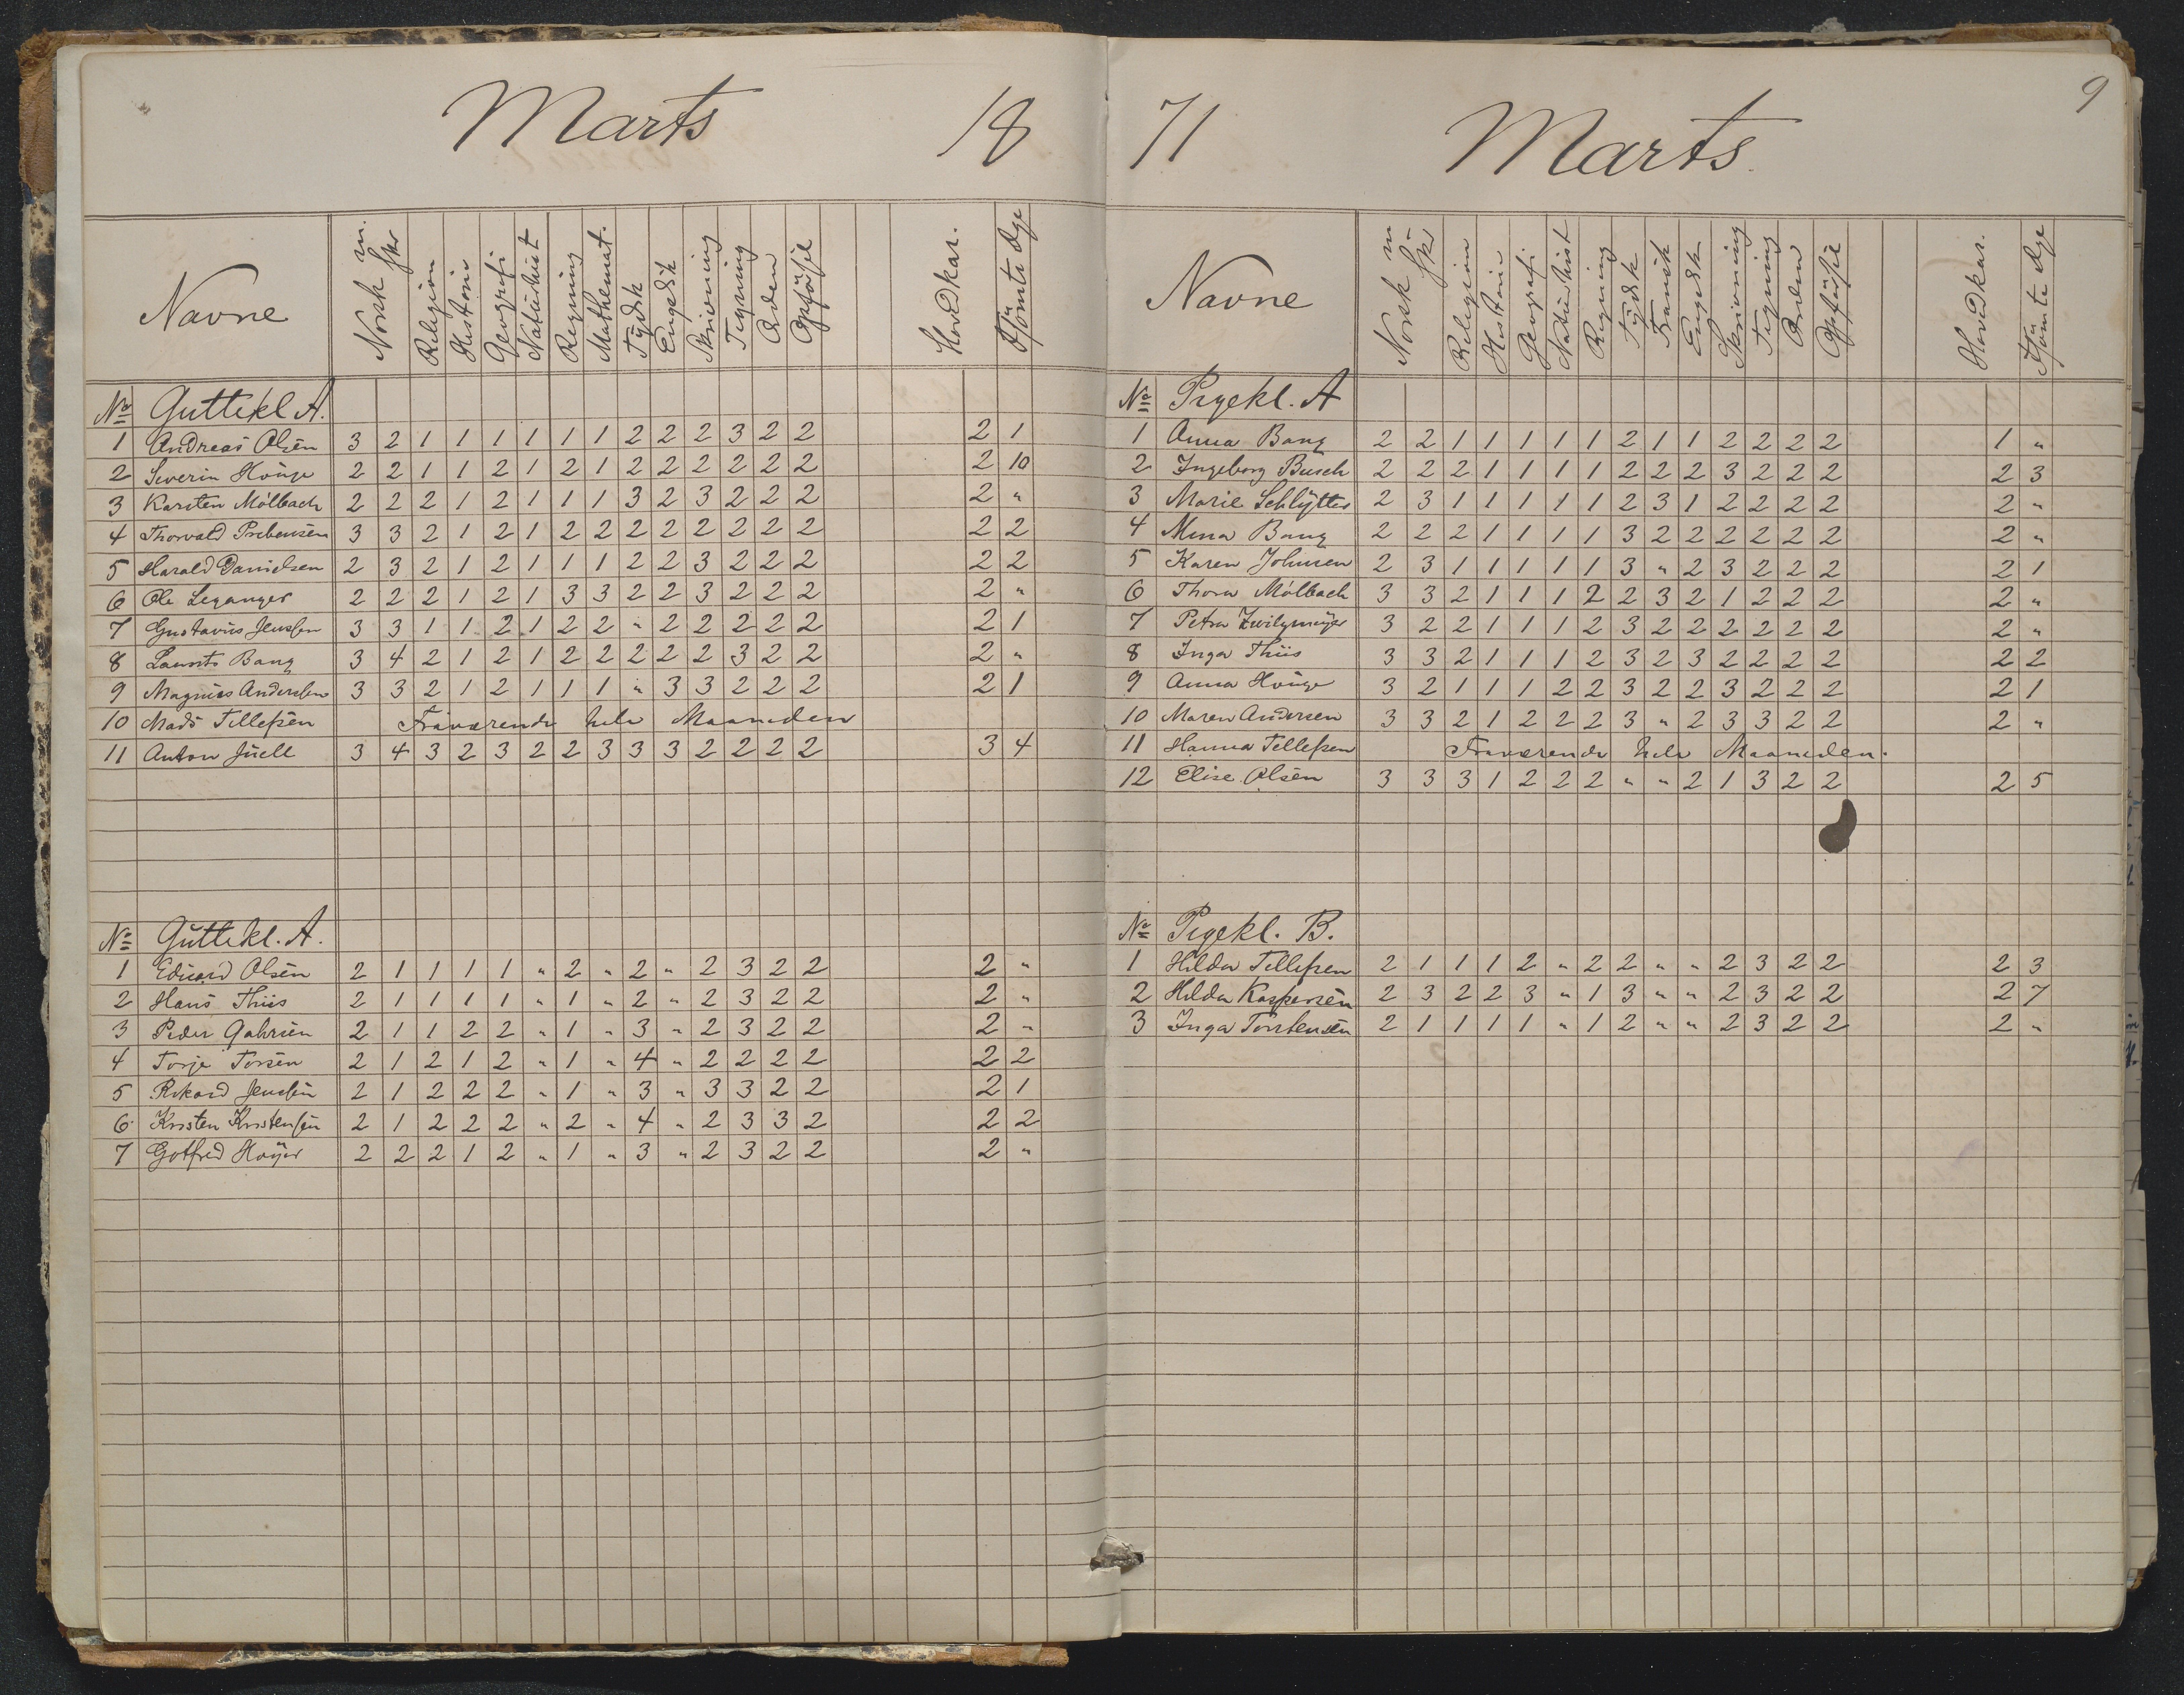 Marts 18
Navne Norsk m. skr Religion Historie Geografi Naturhist Regning Mathemat. Tydsk Engelsk Skrivning Tegning Orden Opførsel Hovedkar. Forsømte Dge
No Guttekl A.
1 Andreas Olsen 3 2 1 1 1 1 1 1 2 2 2 3 2 2 2 1
2 Severin Houge 2 2 1 1 2 1 2 1 2 2 2 2 2 2 2 10
3 Karsten Mölbach 2 2 2 1 2 1 1 1 3 2 3 2 2 2 2 "
4 Thorvald Prebensen 3 3 2 1 2 1 2 2 2 2 2 2 2 2 2 2
5 Harald Danielsen 2 3 2 1 2 1 1 1 2 2 3 2 2 2 2 2
6 Ole Leganger 2 2 2 1 2 1 3 3 2 2 3 2 2 2 2 "
7 Gustavus Jenssen 3 3 1 1 2 1 2 2 " 2 2 2 2 2 2 1
8 Laurits Bang 3 4 2 1 2 1 2 2 2 2 2 3 2 2 2 "
9 Magnus Anderssen 3 3 2 1 2 1 1 1 " 3 3 2 2 2 2 1
10 Mads Tellefsen Fraværende hele Maaneden
11 Anton Juell 3 4 3 2 3 2 2 3 3 3 2 2 2 2 3 4
No Guttekl. A.
1 Edvard Olsen 2 1 1 1 1 " 2 " 2 " 2 3 2 2 2 "
2 Hans Thiis 2 1 1 1 1 " 1 " 2 " 2 3 2 2 2 "
3 Peder Gabrsen 2 1 1 2 2 " 1 " 3 " 2 3 2 2 2 "
4 Torje Torsen 2 1 2 1 2 " 1 " 4 " 2 2 2 2 2 2
5 Rikard Jenssen 2 1 2 2 2 " 1 " 3 " 3 3 2 2 2 1
6 Kristen Kristensen 2 1 2 2 2 " 2 " 4 " 2 3 3 2 2 2
7 Gotfred Höyer 2 2 2 1 2 " 1 " 3 " 2 3 2 2 2 "
71 Marts. 9
Navne Norsk m skr Religion Historie Geografi Naturhist Regning Tydsk Fransk Engelsk Skrivning Tegning Orden Opførsel Hovedkar. Forsømte Dge
No Pigekl. A
1 Anna Bang 2 2 1 1 1 1 1 2 1 1 2 2 2 2 1 "
2 Ingeborg Busch 2 2 2 1 1 1 1 2 2 2 3 2 2 2 2 3
3 Marie Schlytter 2 3 1 1 1 1 1 2 3 1 2 2 2 2 2 "
4 Mina Bang 2 2 2 1 1 1 1 3 2 2 2 2 2 2 2 "
5 Karen Johnsen 2 3 1 1 1 1 1 3 " 2 3 2 2 2 2 1
6 Thora Mölbach 3 3 2 1 1 1 2 2 3 2 1 2 2 2 2 "
7 Petra Zwilgmeyer 3 2 2 1 1 1 2 3 2 2 2 2 2 2 2 "
8 Inga Thiis 3 3 2 1 1 1 2 3 2 3 2 2 2 2 2 2
9 Anna Houge 3 2 1 1 1 2 2 3 2 2 3 2 2 2 2 1
10 Maren Andersen 3 3 2 1 2 2 2 3 " 2 3 3 2 2 2 "
11 Hanna Tellefsen Fraværende hele Maaneden.
12 Elise Olsen 3 3 3 1 2 2 2 " " 2 1 3 2 2 2 5
No Pigekl. B.
1 Hilda Tellefsen 2 1 1 1 2 " 2 2 " " 2 3 2 2 2 3
2 Hilda Kaspersen 2 3 2 2 3 " 1 3 " " 2 3 2 2 2 7
3 Inga Torstensen 2 1 1 1 1 " 1 2 " " 2 3 2 2 2 "